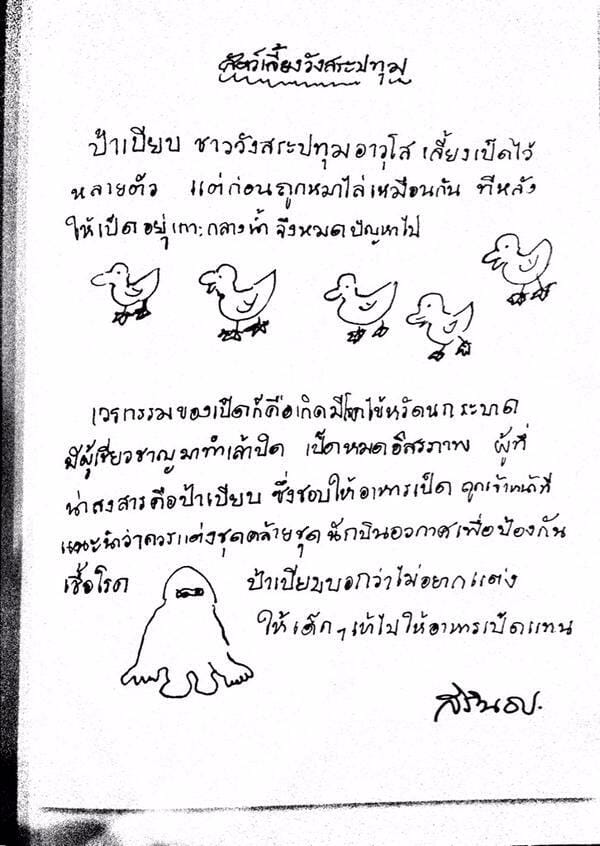 สัตว์เลี้ยงวังสระปทุม
ป้าเบียบ ชาววังสระปทุมอาวุโส เลี้ยงเป็ดไว้
หลายตัว แต่ก่อนถูกหมาไล่เหมือนกัน ทีหลัง
ให้เป็ดอยู่เกาะกลางน้ำ จึงหมดปัญหาไป
เวรกรรมของเป็ดก็คือเกิดมีโรคไข้หวัดนกระบาด
มีผู้เชี่ยวชาญมาทำเล้าปิด เป็ดหมดอิสรภาพ ผู้ที่
น่าสงสารคือป้าเบียบ ซึ่งชอบให้อาหารเป็ด ถูกเจ้าหน้าที่
แนะนำว่าควรแต่งชุดคล้ายชุดนักบินอวกาศเพื่อป้องกัน
เชื้อโรค ป้าเบียบบอกว่าไม่อยากแต่ง
ให้เด็กๆ เข้าไปให้อาหารเป็ดแทน
สิรินธร